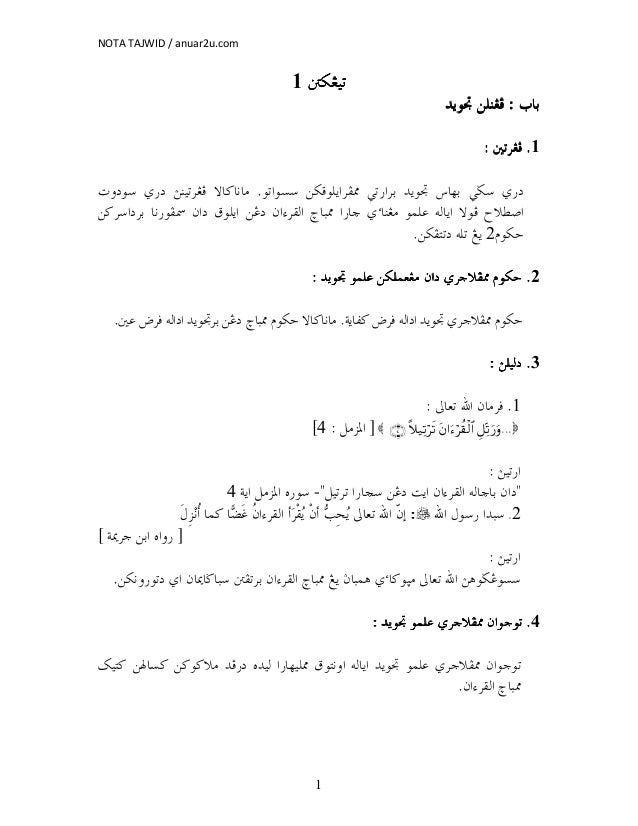 NOTA TAJWID / anuar2u.com
تيڠکتن 1
باب : ڤڠنلن تجويد
1. ڤڠرتين :
دري سکي بهاس تجويد برارتي ممڤرايلوقکن سسواتو. ماناکالا ڤڠرتينڽ دري سودوت
اصطلاح ڤولا اياله علمو مڠناٴي چارا ممباچ القرءان دڠن ايلوق دان سمڤورنا برداسرکن
حکوم2 يڠ تله دتتڤکن.
2. حکوم ممڤلاجري دان مڠعملکن علمو تجويد :
حکوم ممڤلاجري تجويد اداله فرض کفاية. ماناکالا حکوم ممباچ دڠن برتجويد اداله فرض عين.
3. دليلڽ :
1. فرمان الله تعالى :
﴿...وَرَتِّلِ ٱلْقُرْءَانَ تَرْتِيلاً ﴾ [ المزمل : 4]
ارتيڽ :
"دان باچاله القرءان ايت دڠن سچارا ترتيل"- سوره المزمل اية 4
2. سبدا رسول الله ﷺ: إنّ الله تعالى يُحِبُّ أنْ يُقْرَأ القرءانُ غَضًّا كما أُنْزِلَ
[ رواه ابن خزيمة ]
ارتيڽ :
سسوڠکوهڽ الله تعالى مڽوکاٴي همبان يڠ ممباچ القرءان برتڤتن سباݢايمان اي دتورونکن.
4. توجوان ممڤلاجري علمو تجويد :
توجوان ممڤلاجري علمو تجويد اياله اونتوق ممليهارا ليده درڤد ملاکوکن کسالهن کتيک
ممباچ القرءان.
1